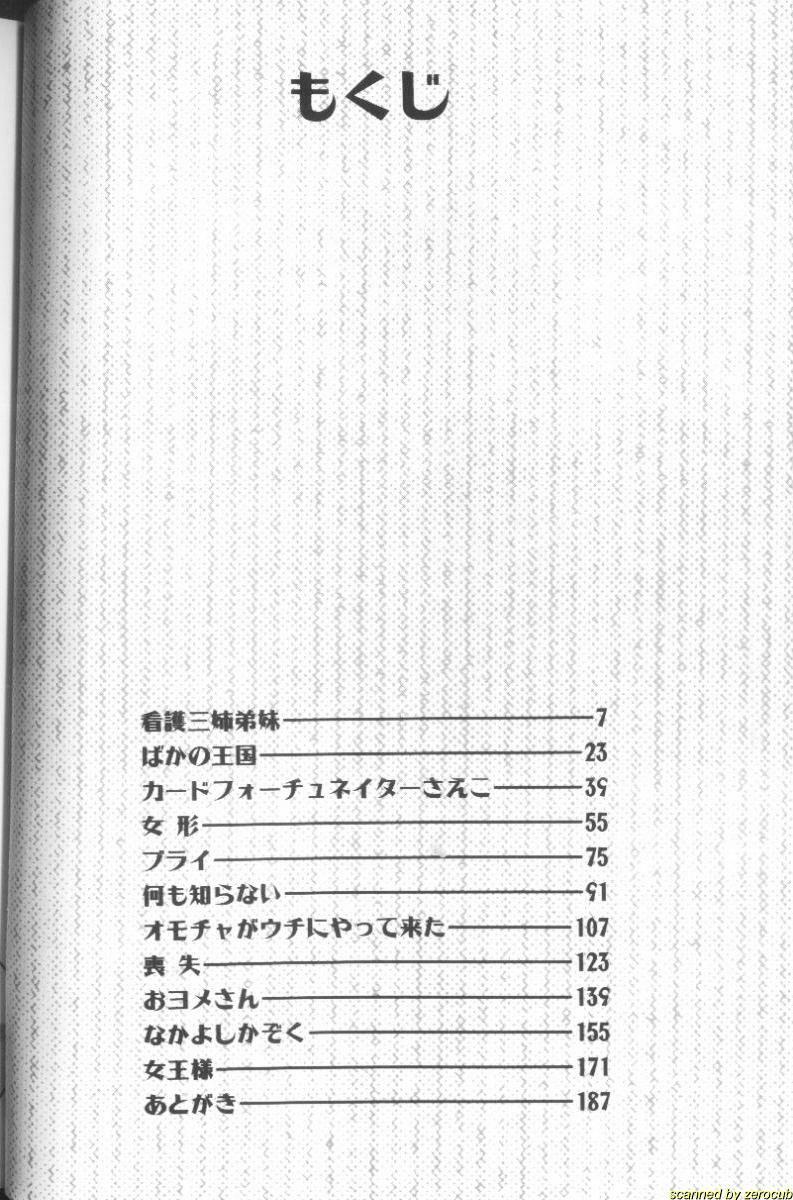 もくじ
看護三姉弟妹 7
ばかの王国 23
カードフォーチュネイターさえこ 39
女形 55
プライ 75
何も知らない 91
オモチャがウチにやって来た 107
喪失 123
おヨメさん 139
なかよしかぞく 155
女王様 171
あとがき 187
scanned by zerocub